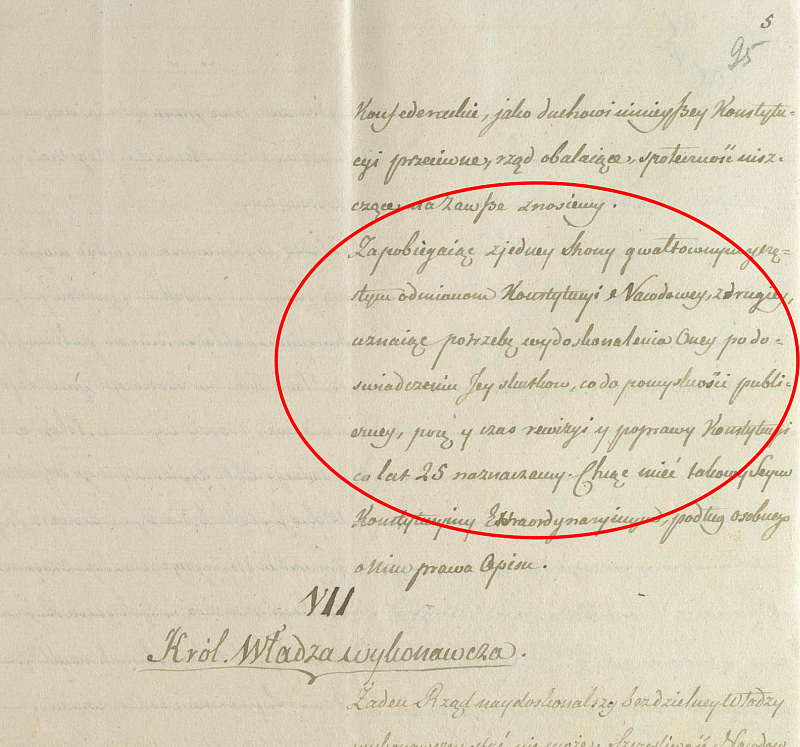 5
95
Konfederackie, jako duchowi ninieyszey Konstytu-
cyi przeciwne, rząd obalaiące, społeczność nisz-
czące, na zawsze znosiemy.
Zapobiegaiąc z jedney strony gwałtownym y czę-
stym odmianom Konstytucyi Narodowey, z drugiey,
uznaiąc potrzebę wydoskonalenia Oney po do-
swiadczeniu Jey skutkow, co do pomyslności publi-
czney, porę y czas rewizyi y poprawy Konstytucyi
co lat 25 naznaczamy. Chcąc mieć takowy Seym
Konstytucyiny Extraordynaryinym, podług osobnego
o nim prawa Opisu.
VII
Król. Władza wykonawcza.
Żaden Rząd naydoskonalszy bez dzielney Władzy
wykonawczey stać nie może. Szczęśliwość Narodow